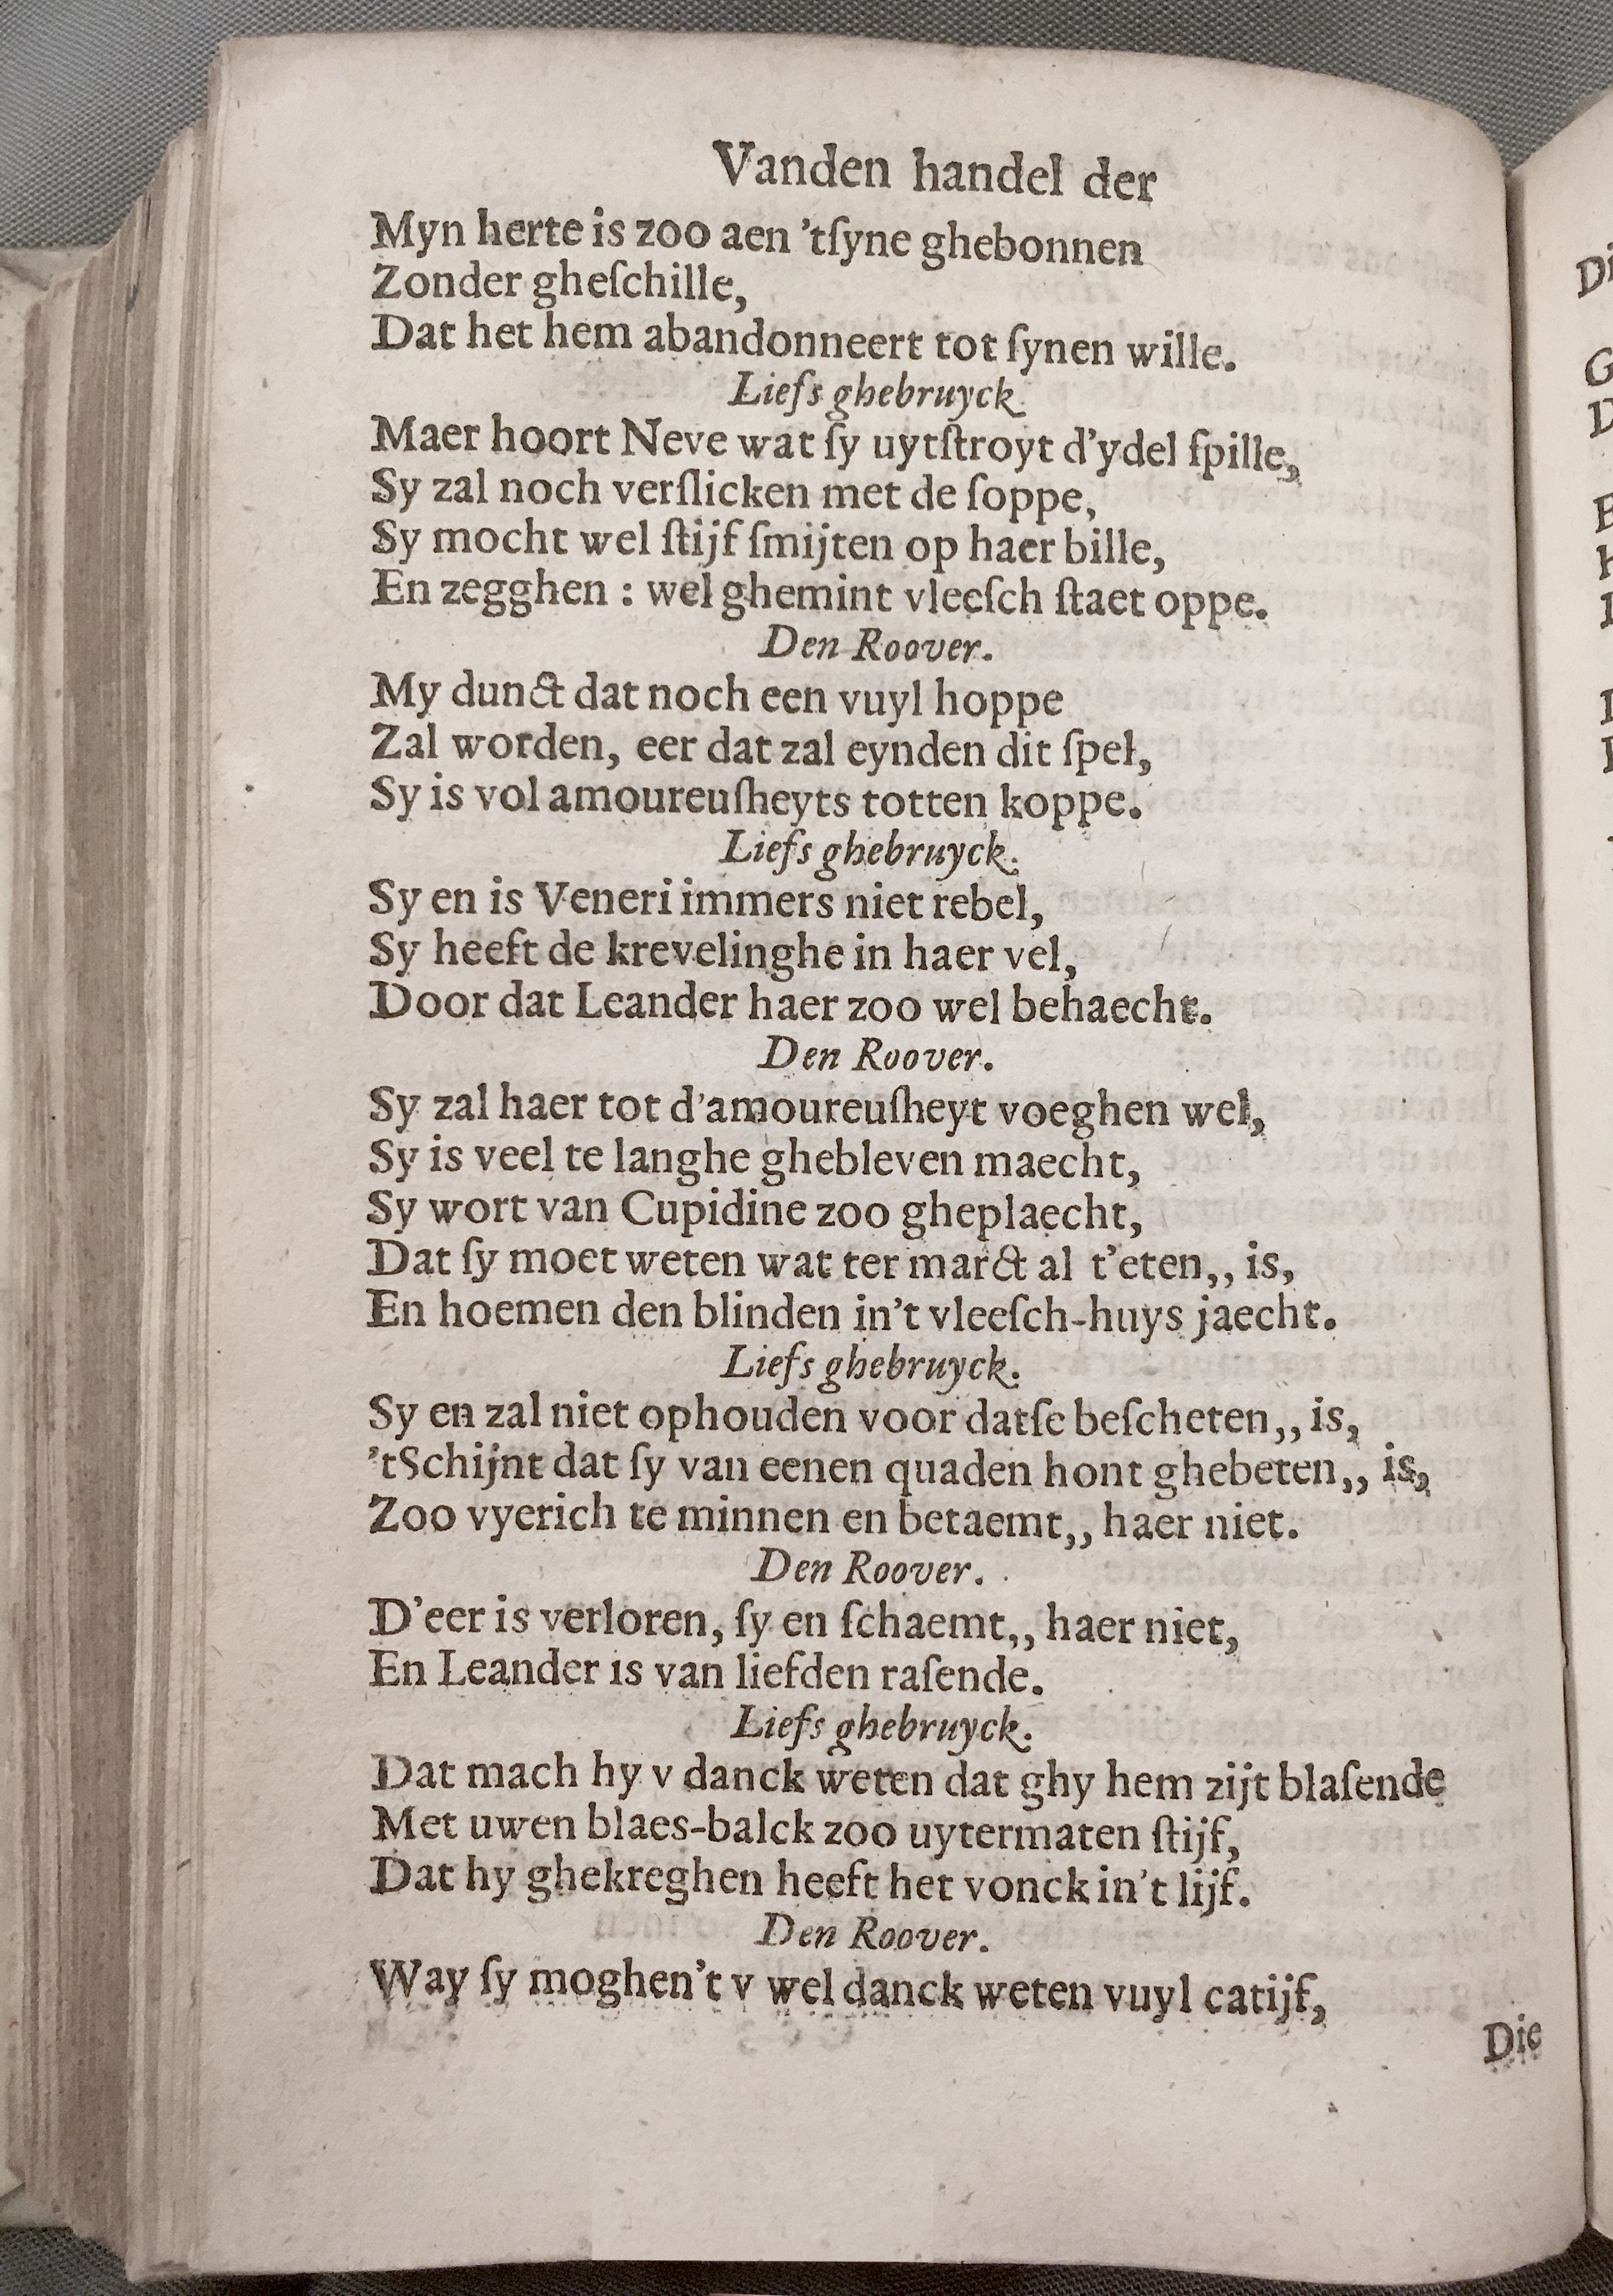 Vanden handel der
Myn herte is zoo aen 'tſyne ghebonnen
Zonder gheſchille,
Dat het hem abandonneert tot ſynen wille.
Liefs ghebruyck.
Maer hoort Neve wat ſy uytſtroyt d'ydel ſpille,
Sy zal noch verſlicken met de ſoppe,
Sy mocht wel ſtijf ſmijten op haer bille,
En zegghen : wel ghemint vleeſch ſtaet oppe.
Den Roover.
My dunct dat noch een vuyl hoppe
Zal worden, eer dat zal eynden dit ſpel,
Sy is vol amoureuſheyts totten koppe.
Liefs ghebruyck.
Sy en is Veneri immers niet rebel,
Sy heeft de krevelinghe in haer vel,
Door dat Leander haer zoo wel behaecht.
Den Roover.
Sy zal haer tot d'amoureuſheyt voeghen wel,
Sy is veel te langhe ghebleven maecht,
Sy wort van Cupidine zoo gheplaecht,
Dat ſy moet weten wat ter marct al t'eten,, is,
En hoemen den blinden in't vleeſch-huys jaecht.
Liefs ghebruyck.
Sy en zal niet ophouden voor datſe beſcheten,, is,
'tSchijnt dat ſy van eenen quaden hont ghebeten,, is,
Zoo vyerich te minnen en betaemt,, haer niet.
Den Roover.
D'eer is verloren, ſy en ſchaemt,, haer niet,
En Leander is van liefden raſende.
Liefs ghebruyck.
Dat mach hy v danck weten dat ghy hem zijt blaſende
Met uwen blaes-balck zoo uytermaten ſtijf,
Dat hy ghekreghen heeft het vonck in't lijf.
Den Roover.
Way ſy moghen't v wel danck weten vuyl catijf,
Die